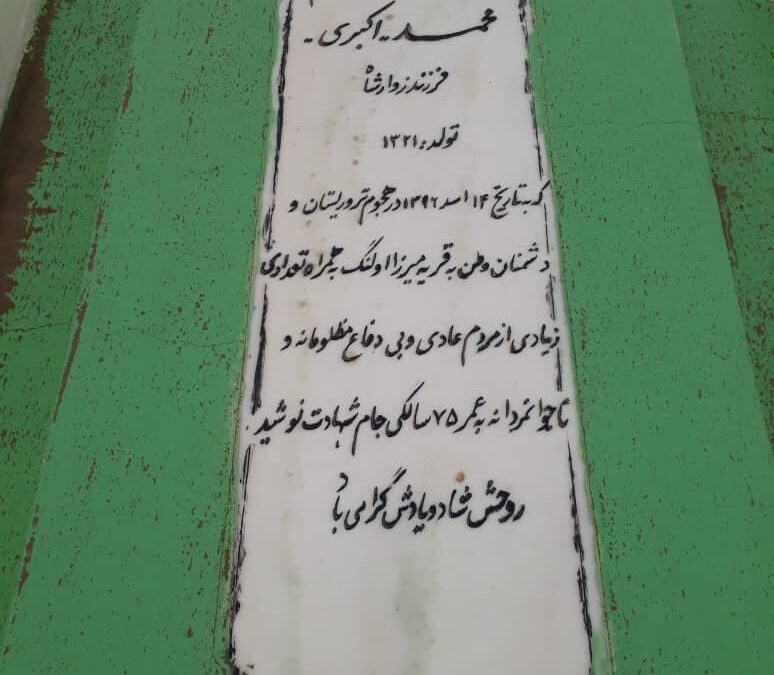 محمد - اکبری -
فرزند زوار شاه
تولد: ۱۳۲۱
که به تاریخ ۱۴ اسد ۱۳۹۶ در هجوم تروریستان و
دشمنان وطن به قریه میرزا اولنگ به همراه تعدادی
زیادی از مردم عادی و بی دفاع مظلومانه و
ناجوانمردانه به عمر ۷۵ سالگی جام شهادت نوشید
روحش شاد و یادش گرامی باد